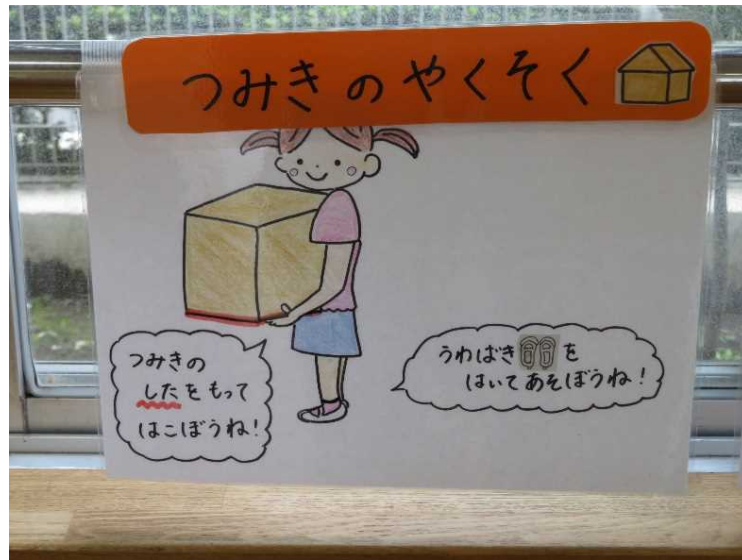 つみきのやくそく
つみきの
したをもって
はこぼうね!
うわばきを
はいてあそぼうね!